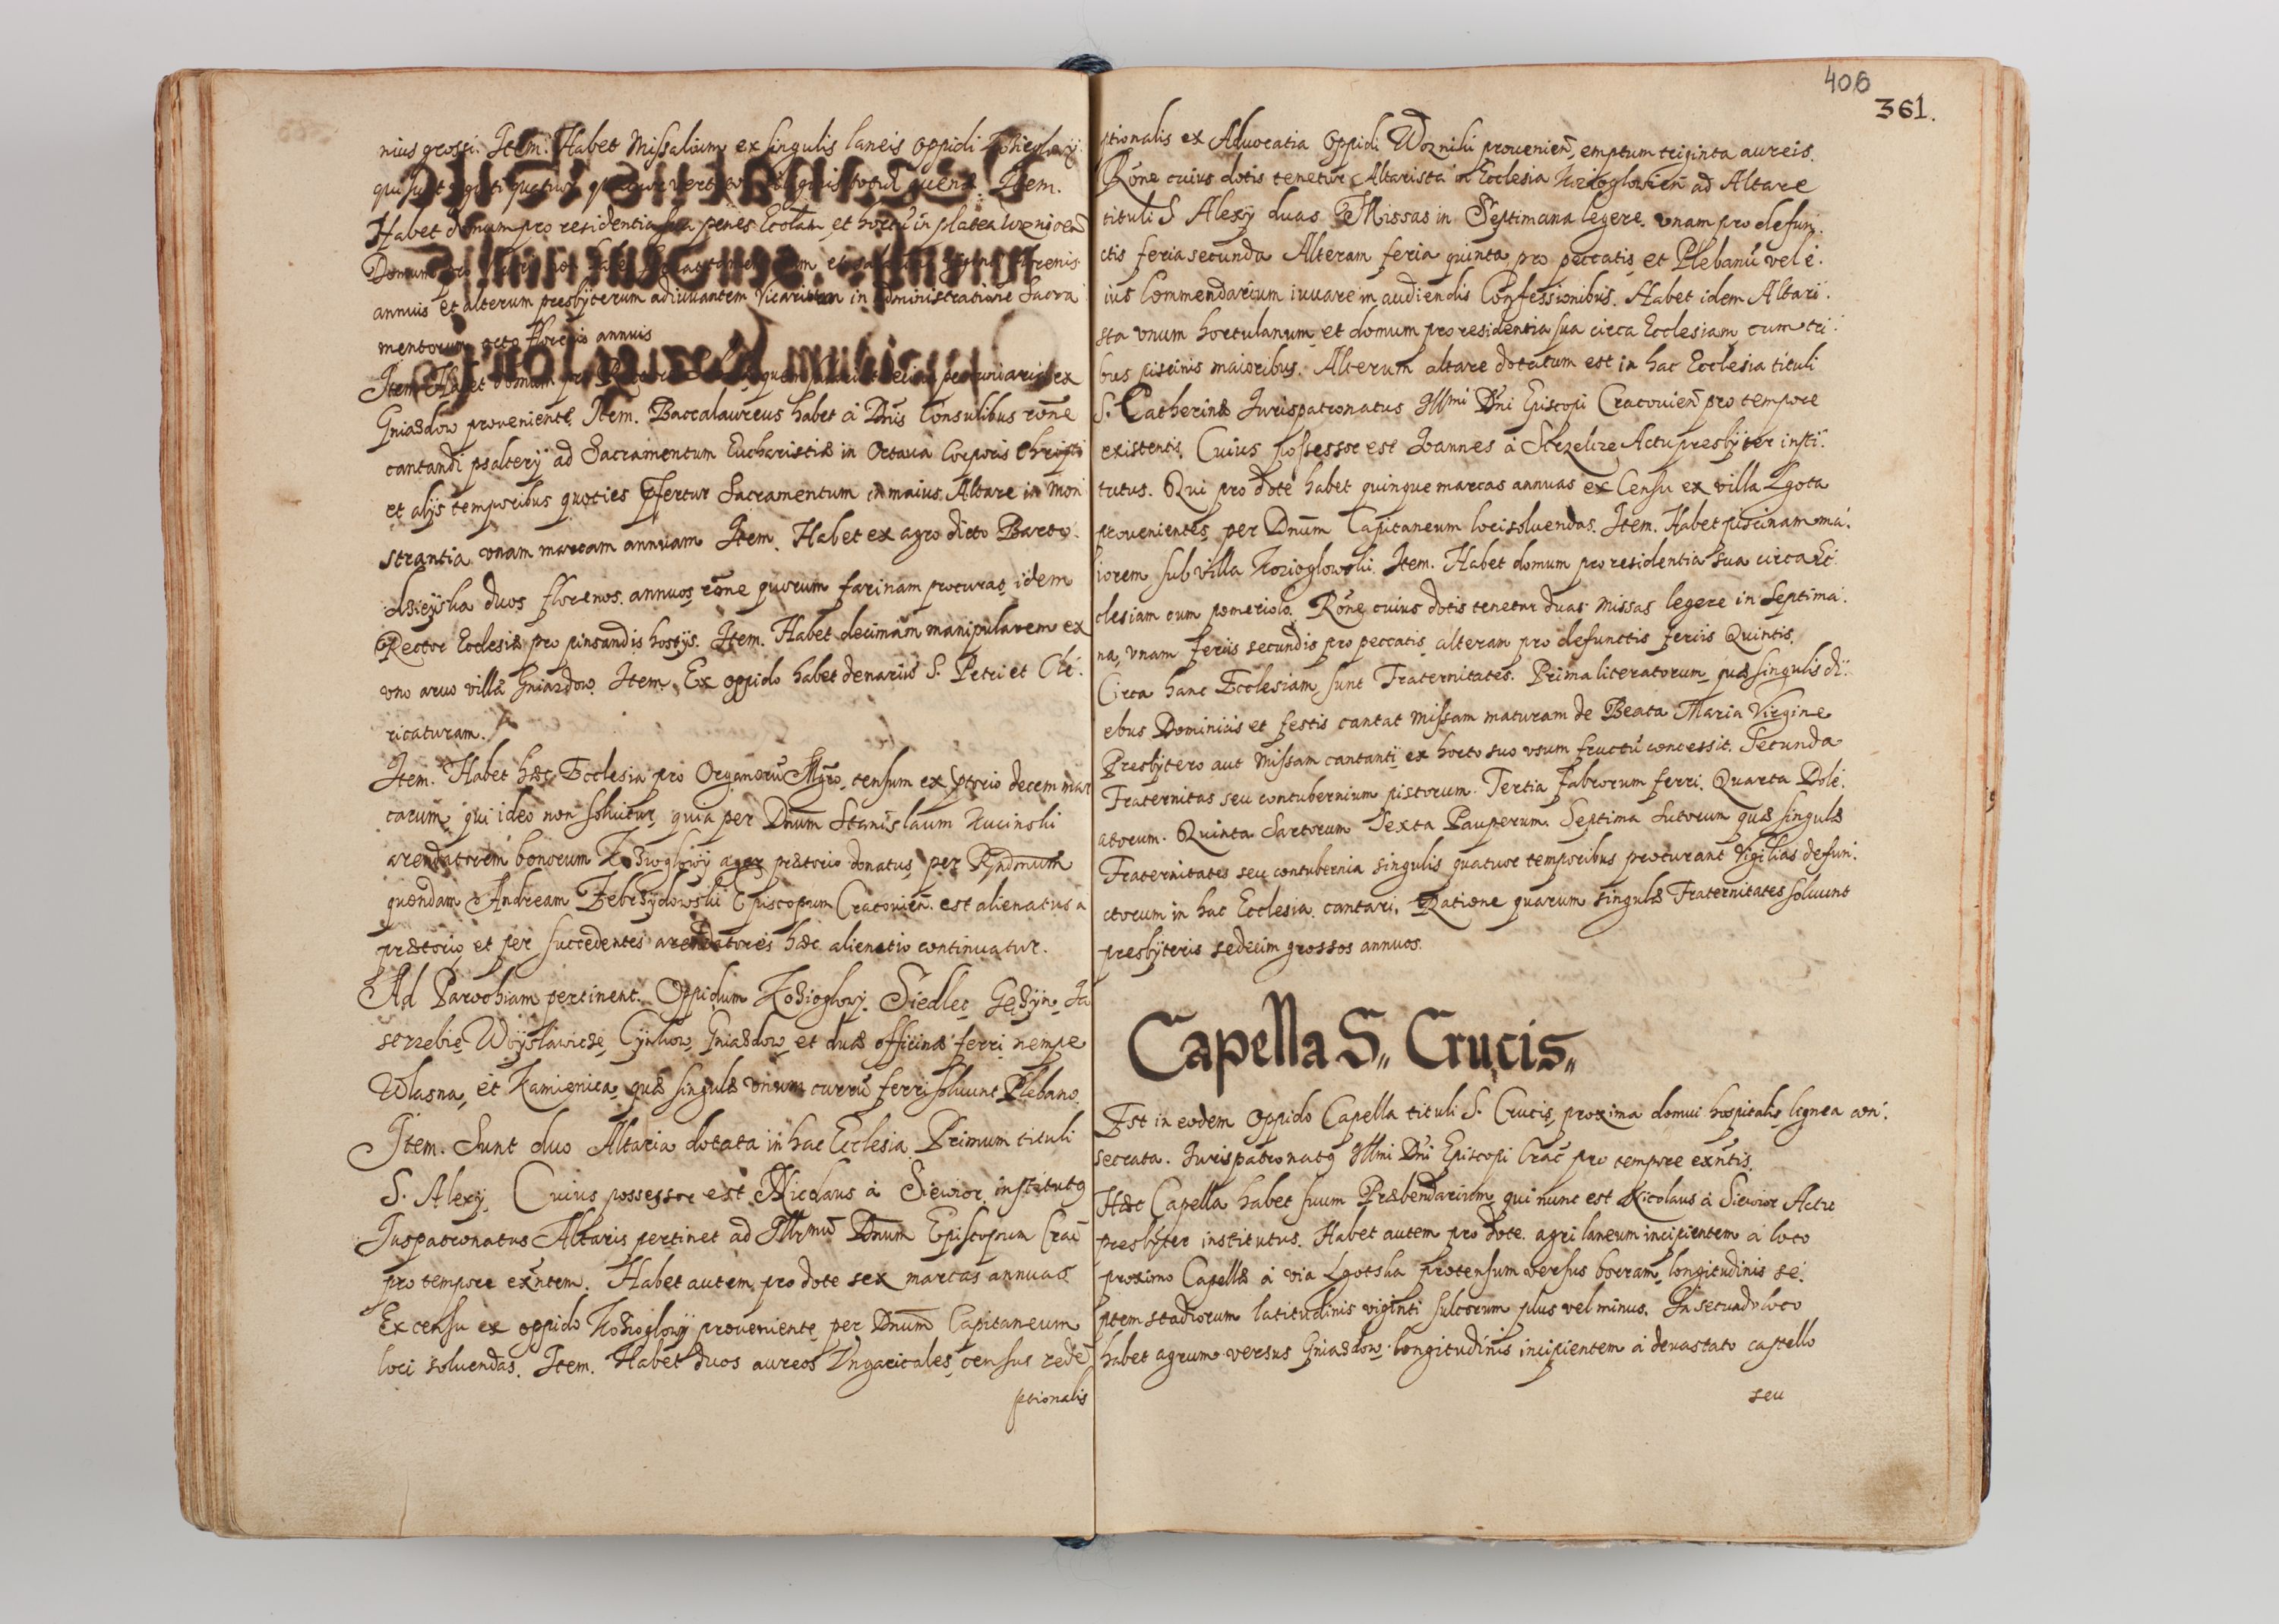 nius grossi. Item. Habet Missalium ex singulis laneis oppidi Kozieglowÿ.
qui sunt Item.
Habet domum pro residentia sua penes Ecclam et hortũ in platea
Domum et
annuis et alterum presbÿterum adiuuantem Vicarium in administratione Sacra
mentorum octo florenis annuis
Item Habet domum pro pecuniariis ex
Gniazdow proueniente. Item. Baccalaureus habet à Dnis Consulibus rõne
cantandi psalterÿ ad Sacramentum Eucharistiæ in Octaua Corporis Christi
et alÿs temporibus quoties pfertur Sacramentum in maius Altare in Mon
strantia vnam marcam annuam Item. Habet ex agro dicto Barto.
duos florenos annuos rõne quorum farinam procurat idem
Rector Ecclesiæ pro pinsandis hostÿs. Item. Habet decimam manipularem ex
vno aruo villæ Gniazdow. Item. Ex oppido habet denariũ S. Petri et Cle.
ricaturam.
Item. Habet hæc Ecclesia pro Organorũ Mgro censum ex ptorio decem mar
carum, qui ideo non soluitur, quia per Dnum Stanislaum Kucinski
arendatorem bonorum Kozieglowÿ ager prætorio donatus, per Rndmum
quondam Andream Zebrzÿdowski Episcopum Cracouieñ. est alienatus à
prætorio et per succedentes arendatores hæc alienatio continuatur.
Ad Parochiam pertinent. Oppidum Kozioglowÿ. Siedlec, Gezÿn, Ja
strzebie, Woÿslawicze, Cÿnkow, Gniazdow, et duæ officinæ ferri nempe
Wlasna, et Kamienica, quæ singulæ vnum currũ ferri soluunt Plebano.
Item. Sunt duo Altaria dotata in hac Ecclesia. Primum tituli
S. Alexÿ, Cuius possessor est Nicolaus à Siewior institutꝯ
Juspatronatus Altaris pertinet ad Illrmũ Dnum Episcopum Crac̃
pro tempore exñtem. Habet autem pro dote sex marcas annuas
Ex censu ex oppido Kozioglowÿ proueniente per Dnum Capitaneum
loci soluendas. Item. Habet duos aureos Vngaricales, census redẽ
ptionalis
406
361.
ptionalis ex Aduocatia Oppidi Woznikÿ prouenieñ, emptum triginta aureis.
Rõne cuius dotis tenetur Altarista in Ecclesia Kozioglowieñ ad Altare
tituli S Alexÿ duas Missas in Septimana legere. vnam pro defun.
ctis feria secunda Alteram feria quinta pro peccatis et Plebanũ vel e.
ius Commendarium iuuare in audiendis Confessionibus. Habet idem Altari.
sta vnum hortulanum et domum pro residentia sua circa Ecclesiam cum tri.
bus piscinis maioribus. Alterum altare dotatum est in hac Ecclesia tituli
S. Catherinæ Jurispatronatus Illmi Dni Episcopi Cracouieñ pro tempore
existentis. Cuius possessor est Joannes à Strzelcze Actu presbÿter insti.
tutus. Qui pro dote habet quinque marcas annuas ex Censu ex villa Lgota
prouenientes per Dnum Capitaneum loci soluendas. Item. Habet piscinam ma.
iorem sub villa Kozioglowki. Item. Habet domum pro residentia sua circa Ec.
clesiam cum pomeriolo. Rõne cuius dotis tenetur duas missas legere in Septima.
na, vnam feriis secundis pro peccatis alteram pro defunctis feriis Quintis.
Circa hanc Ecclesiam sunt Fraternitates. Prima literatorum, quæ singulis di.
ebus Dominicis et festis cantat missam maturam de Beata Maria Virgine
Presbÿtero aut Missam cantanti ex horto suo vsum fructũ concessit. Secunda
Fraternitas seu contubernium pistorum. Tertia Fabrorum ferri. Quarta Dole.
atorum. Quinta Sartorum Sexta Pauperum. Septima Sutorum quæ singulæ
Fraternitates seu contubernia singulis quatuor temporibus procurant Vigilias defun.
ctorum in hac Ecclesia cantari, Ratione quarum singulæ Fraternitates soluunt
presbÿteris sedecim grossos annuos.
Capella S,, Crucis,,
Est in eodem Oppido Capella tituli S. Crucis, proxima domui hospitalis lignea con.
secrata. Jurispatronatꝯ Illmi Dni Episcopi Crac̃ pro tempore exñtis.
Hæc Capella habet suum Præbendarium qui nunc est Nicolaus à Siewior Actu
presbÿter institutus. Habet autem pro dote agri laneum incipientem à loco
proximo Capellæ à via Lgotska protensum versus boream, longitudinis se.
ptem stadiorum latitudinis viginti sulcorum plus vel minus. In secundo loco
habet agrum versus Gniazdow longitudinis incipientem à deuastato castello
seu